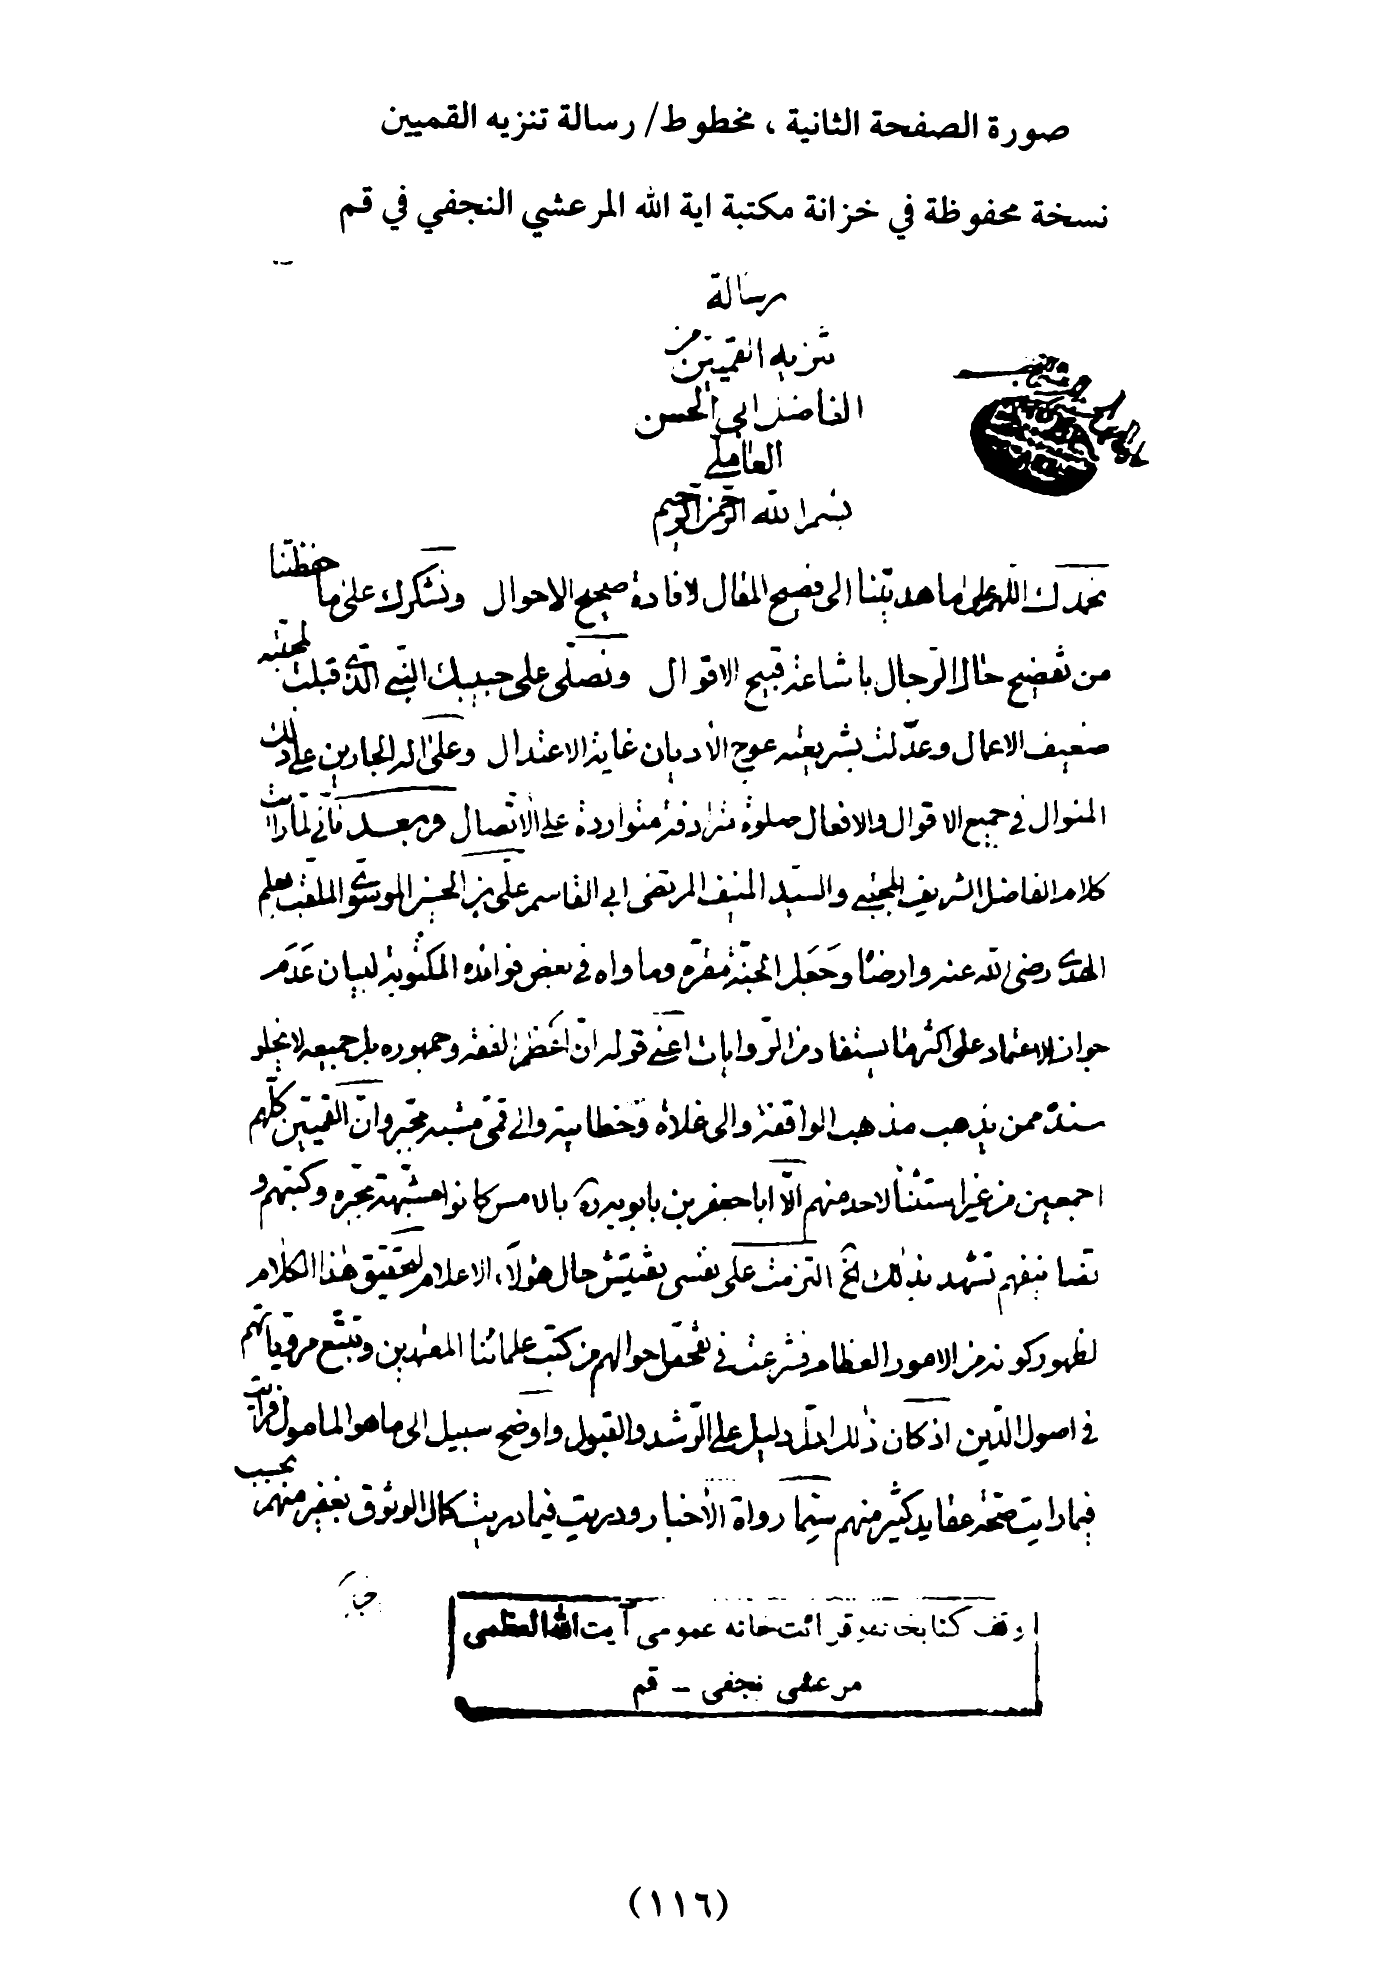 صورة الصفحة الثانية ، مخطوط/ رسالة تنزيه القميين
نسخة محفوظة في خزانة مكتبة اية الله المرعشي النجفي في قم
رسالة
تنزيه القميين من
الفاضل ابي الحسن
العاملي
بسم الله الرحمن الرحيم
نحمدك اللهم على ما هديتنا الى فصيح المقال لافادة صحيح الاحوال ونشكرك على ما حفظتنا
من تفضيح حال الرجال باشاعة قبيح الاقوال ونصلى على حبيبك النبي الذي قبلت لمحبته
ضعيف الاعمال وعدلت بشريعته عوج الاديان غاية الاعتدال وعلى اله الجارين على ذلك
المنوال في جميع الاقوال والافعال صلوة مترادفة متواردة على الاتصال وبعد فاني لما رايت
كلام الفاضل الشريف المجتبى والسيد المنيف المرتضى ابي القاسم على بن الحسين الموسوي الملقب بعلم
الهدى رضى الله عنه وارضاه وجعل الجنة مقره وماواه في بعض فوائده المكتوبة لبيان عدم
جواز الاعتماد على اكثر ما يستفاد من الروايات اعني قوله ان اعظم الفقه وجمهوره بل جميعه لا يخلو
سنده ممن يذهب مذهب الواقفة والى غلاة وخطابية والى قمى مشبه مجبر وان القميين كلهم
اجمعين من غير استثناء لاحد منهم الا ابا جعفر بن بابويه ره بالامس كانوا مشبهة مجبره وكتبهم و
تصانيفهم تشهد بذلك الخ التزمت على نفسى تفتيش حال هؤلاء الاعلام لتحقيق هذا الكلام
لظهور كونه من الامور العظام فشرعت في تفحص احوالهم من كتب علمائنا المعتمدين وتتبع مروياتهم
في اصول الدين اذ كان ذلك ادل دليل على الرشد والقبول واوضح سبيل الى ما هو المامول فرايت
فيما رايت صحة عقايد كثير منهم سيما رواة الاخبار ودريت فيما دريت كمال الوثوق بغفير منهم بحسب
وقف كتابخانه و قرائت خانه عمومى آيت الله العظمى
مرعشى نجفى - قم
(١١٦)